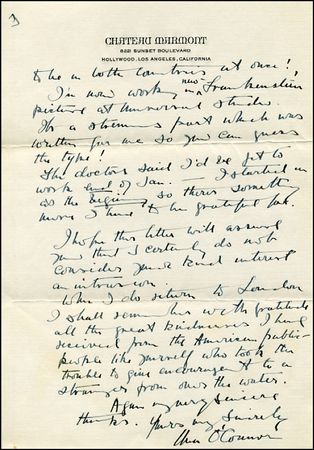 3
CHATEAU MARMONT
8221 SUNSET BOULEVARD
HOLLYWOOD, LOS ANGELES, CALIFORNIA
to be in both countries at once!
I'm now working in a new Frankenstein
picture at Universal Studios.
It's a strenuous part which was
written for me so you can guess
the type!
The doctors said I'd be fit to
work end of Jan. — I started in
at the beginning so there's something
more I have to be grateful for.
I hope this letter will assure
you that I certainly do not
consider your kind interest
an intrusion.
When I do return to London
I shall remember with gratitude
all the great kindnesses I have
received from the American public –
people like yourself who took the
trouble to give encouragement to a
stranger from over the water.
Again my very sincere
thanks. Yours very sincerely
Una O'Connor